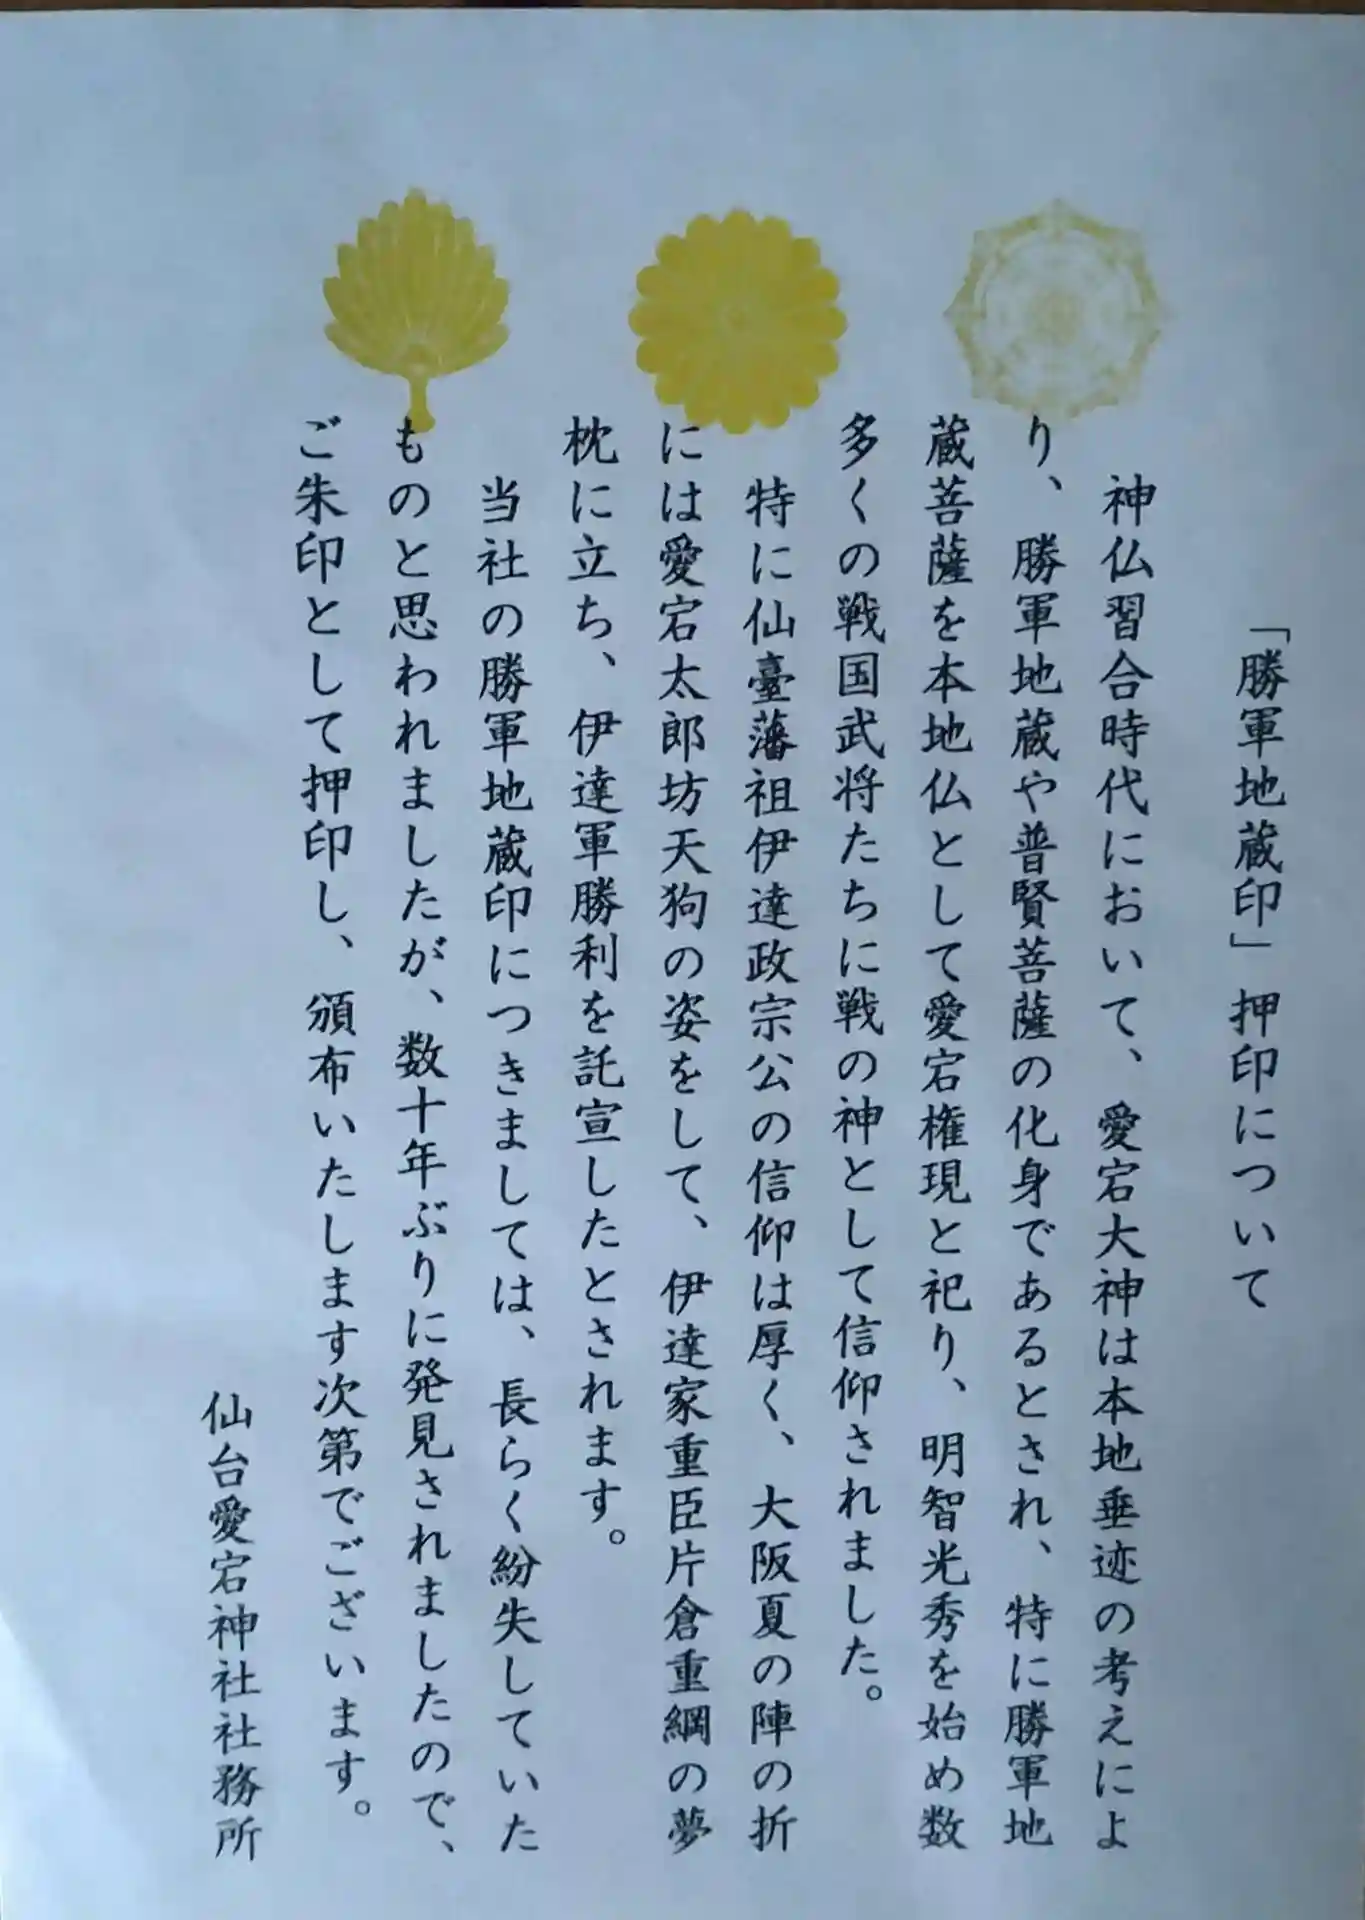 「勝軍地蔵印」押印について
神仏習合時代において、愛宕大神は本地垂迹の考えによ
り、勝軍地蔵や普賢菩薩の化身であるとされ、特に勝軍地
蔵菩薩を本地仏として愛宕権現と祀り、明智光秀を始め数
多くの戦国武将たちに戦の神として信仰されました。
特に仙臺藩祖伊達政宗公の信仰は厚く、大阪夏の陣の折
には愛宕太郎坊天狗の姿をして、伊達家重臣片倉重綱の夢
枕に立ち、伊達軍勝利を託宣したとされます。
当社の勝軍地蔵印につきましては、長らく紛失していた
ものと思われましたが、数十年ぶりに発見されましたので、
ご朱印として押印し、頒布いたします次第でございます。
仙台愛宕神社社務所